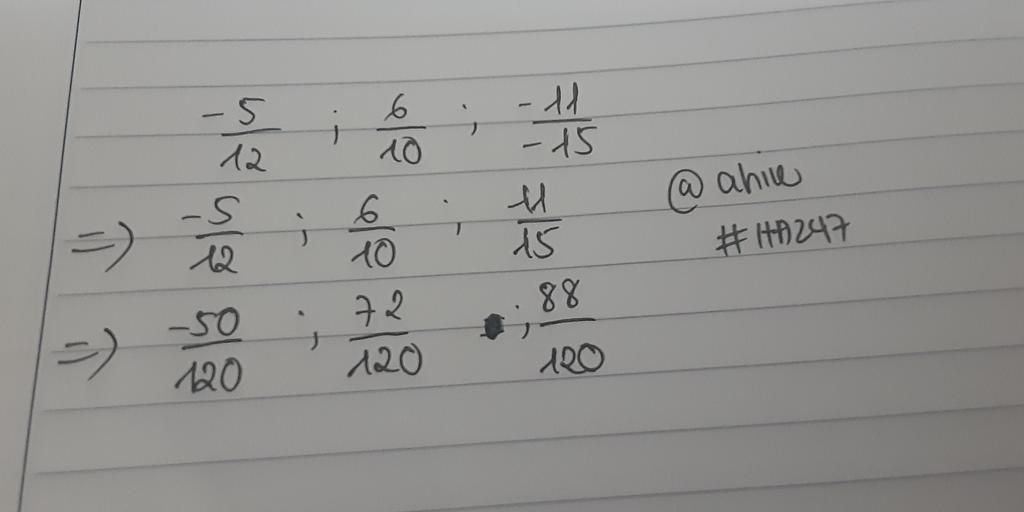 -5/12 ; 6/10 ; -11/-15
=> -5/12 ; 6/10 ; 11/15
@ahive
#HA247
=> -50/120 ; 72/120 ; 88/120